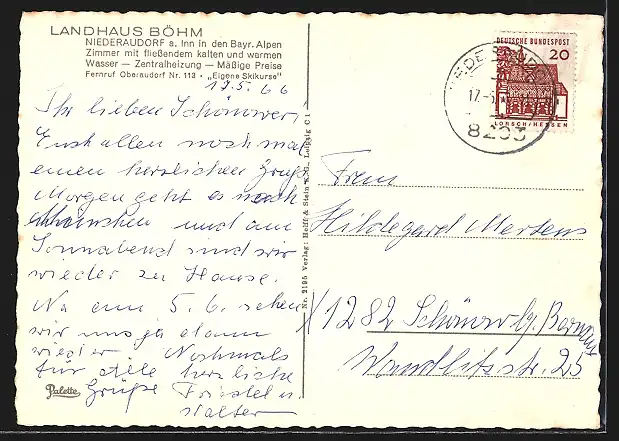 LANDHAUS BÖHM
NIEDERAUDORF a. Inn in den Bayr. Alpen
Zimmer mit fließendem kalten und warmen
Wasser — Zentralheizung — Mäßige Preise
Fernruf Oberaudorf Nr. 113 • „Eigene Skikurse"
17.5.66
Ihr lieben Schönower,
Euch allen nochmal
einen herzlichen Gruß
Morgen geht es nach
München und am
Sonnabend sind wir
wieder zu Hause.
Na am 5.6. sehen
wir uns ja dann
wieder. Nochmals
für alle herzliche
Grüße
Walter
Palette
Nr. 2195 Verlag: Helft & Stein KG, Leipzig C 1
DEUTSCHE BUNDESPOST
20
LORSCH/HESSEN
17.-5.
8203
Frau
Hildegard Mertens
1282 Schönow
Wandlitzstr. 25